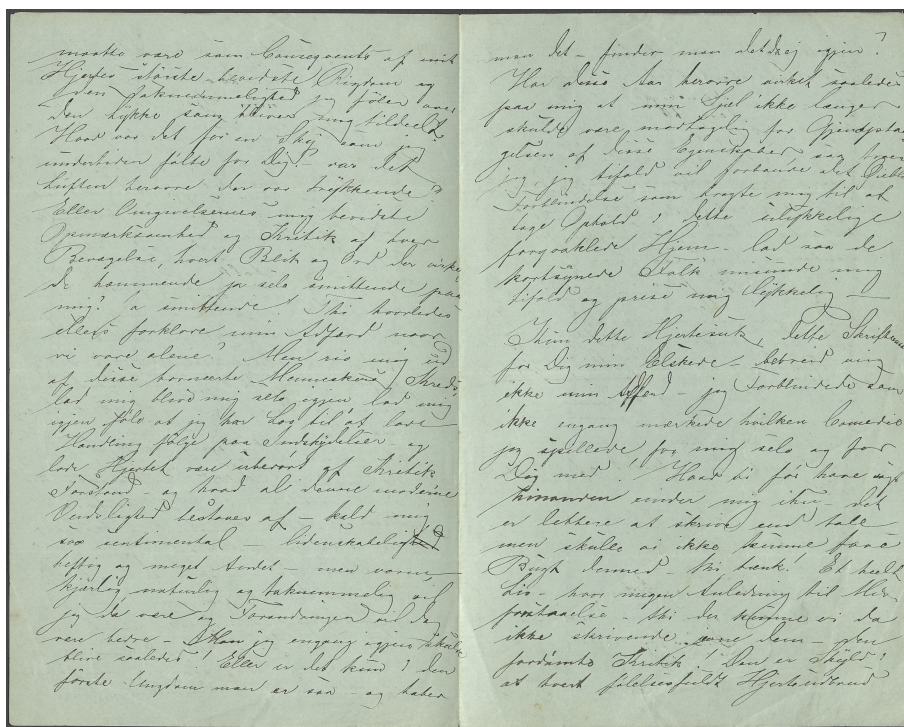 maatte være som Consequents af mit
Hjertes største bevidste Rigdom og
den Taknemmelighed jeg føler over
den Lykke som bliver mig tildeelt
Hvad var det for en Sky som jeg
undertiden følte for Dig? var det
Luften herovre der var trykkende?
Eller Omgivelsernes mig bevidste
Opmærksomhed og Kritik af hver
Bevægelse, hvert Blik og Ord der virke
de hæmmende ja selv smittende paa
mig? ja smittende! Thi hvorledes
ellers forklare min Adfærd naar
vi vare alene? Men riv mig ud
af disse bornerte Menneskers Kreds,
lad mig blive mig selv igjen, lad mig
igjen føle at jeg har Lov til at lade
Handling følge paa Indskydelser - og
lade Hjertet være uberørt af Kritik
Forstand - og hvad al denne moderne
Verdslighed bestaaer af - kald mig
saa sentimental - lidenskabelig
heftig og meget Andet - men varm,
kjærlig naturlig og taknemmelig vil
jeg da være og Forandringen vil da
være bedre - Man jeg engang igjen skulde
blive saaledes! Eller er det kun i den
første Ungdom man er saa - og taber
man det - finder man det da ej igjen?
Har disse Aar herovre virket saaledes
paa mig at min Sjel ikke længer
skulde være modtagelig for Gjenopta
gelsen af disse Egenskaber, saa
jeg, jeg ifald vil forbande det Øiebliks
Forblindelse som bragte mig til at
tage Ophold i dette ulykkelige
forqvaklede Hjem - lad saa de
kortsynede Folk misunde mig
ifald og prise mig lykkelig -
Kun dette Hjertesuk, dette Skriftemaal
for Dig min Elskede - bebreid mig
ikke min Adfærd - jeg Forblindede som
ikke engang mærkede hvilken Comedie
jeg spillede for mig selv og for
Dig med! Hvad vi før have sagt
hinanden minder mig ikke - det
er lettere at skrive end tale
men skulle vi ikke komme for
Bugt dermed - thi tænk! Et heelt
Liv - hvor megen Anledning til Mis-
forstaaelse - thi der kunne vi da
ikke skrivende ordne dem - den
fordømte Kritik! Den er Skyld i
at hvert følelsesfuldt Hjerteudbrud